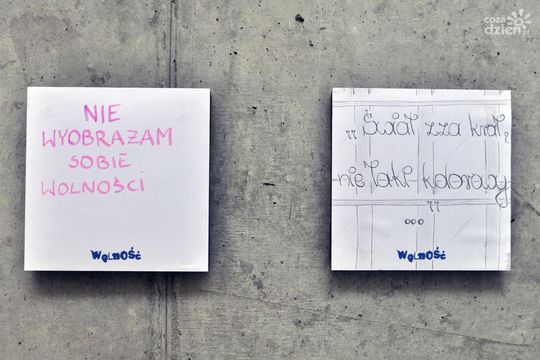 coza
dzien.pl
NIE
WYOBRAZAM
SOBIE
WOLNOŚCI
WOLNOŚĆ
„ Świat zza krat,
nie taki
"
...
WOLNOŚĆ